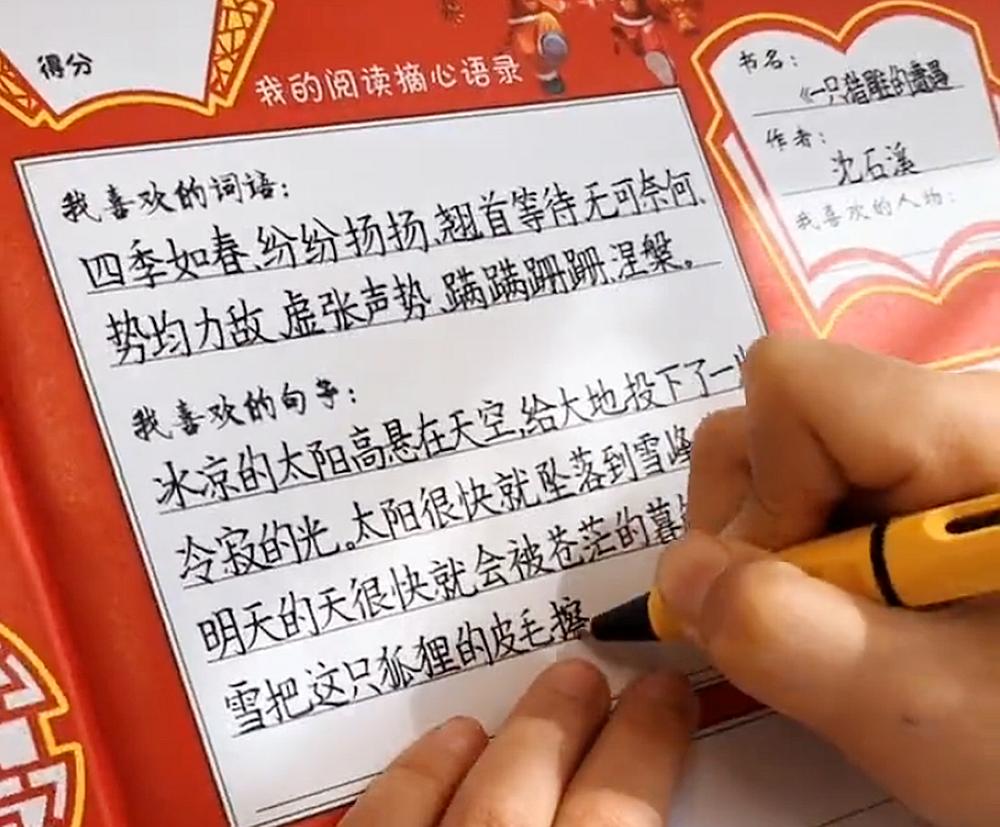 得分
我的阅读摘心语录
我喜欢的词语：
四季如春、纷纷扬扬、翘首等待、无可奈何、
势均力敌、虚张声势、蹒蹒跚跚、涅槃。
我喜欢的句子：
冰凉的太阳高悬在天空,给大地投下了一
冷寂的光。太阳很快就坠落到雪峰
明天的天很快就会被苍茫的暮
雪把这只狐狸的皮毛擦
书名：
《一只猎雕的遭遇
作者：
沈石溪
我喜欢的人物：